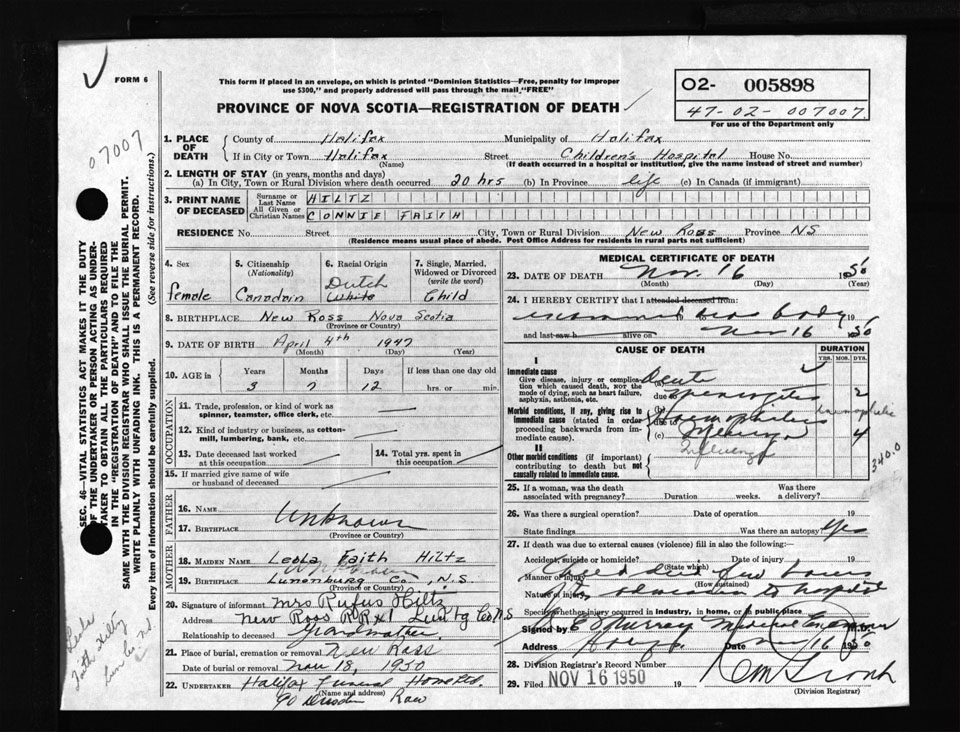 FORM 6
This form if placed in an envelope, on which is printed "Dominion Statistics—Free, penalty for improper
use $300," and properly addressed will pass through the mail "FREE"
PROVINCE OF NOVA SCOTIA—REGISTRATION OF DEATH
02- 005898
47-02-007007
For use of the Department only
07007
SEC. 46—VITAL STATISTICS ACT MAKES IT THE DUTY
OF THE UNDERTAKER OR PERSON ACTING AS UNDER-
TAKER TO OBTAIN ALL THE PARTICULARS REQUIRED
IN THE "REGISTRATION OF DEATH" AND TO FILE THE
SAME WITH THE DIVISION REGISTRAR WHO SHALL ISSUE THE BURIAL PERMIT.
WRITE PLAINLY WITH UNFADING INK. THIS IS A PERMANENT RECORD.
Every item of information should be carefully supplied. (See reverse side for instructions.)
1. PLACE OF DEATH
County of Halifax Municipality of Halifax
If in City or Town Halifax Street Children's Hospital House No.
(Name) (If death occurred in a hospital or institution, give the name instead of street and number)
2. LENGTH OF STAY (in years, months and days)
(a) In City, Town or Rural Division where death occurred 20 hrs (b) In Province life (c) In Canada (if immigrant)
3. PRINT NAME OF DECEASED
Surname or Last Name HILTZ
All Given or Christian Names CONNIE FAITH
RESIDENCE No. Street City, Town or Rural Division New Ross Province NS
(Residence means usual place of abode. Post Office Address for residents in rural parts not sufficient)
4. Sex
female
5. Citizenship
(Nationality)
Canadain
6. Racial Origin
Dutch
White
7. Single, Married,
Widowed or Divorced
(write the word)
Child
8. BIRTHPLACE New Ross Nova Scotia
(Province or Country)
9. DATE OF BIRTH April 4th 1947
(Month) (Day) (Year)
10. AGE in
Years Months Days If less than one day old
3 7 12 hrs. or min.
OCCUPATION
11. Trade, profession, or kind of work as
spinner, teamster, office clerk, etc.
12. Kind of industry or business, as cotton-
mill, lumbering, bank, etc.
13. Date deceased last worked
at this occupation
14. Total yrs. spent in
this occupation
15. If married give name of wife
or husband of deceased
FATHER
16. NAME
Unknown
17. BIRTHPLACE
(Province or Country)
MOTHER
18. MAIDEN NAME Leola Faith Hiltz
19. BIRTHPLACE Lunenburg Co., N.S.
(Province or Country)
20. Signature of informant Mrs Rufus Hiltz
Address New Ross R.R.#1
Relationship to deceased Grandmother
21. Place of burial, cremation or removal New Ross
Date of burial or removal Nov 18, 1950
22. UNDERTAKER Halifax Funeral Home Ltd.
(Name and address)
90 Dresden Row
MEDICAL CERTIFICATE OF DEATH
23. DATE OF DEATH Nov. 16 1950
(Month) (Day) (Year)
24. I HEREBY CERTIFY that I attended deceased from:
examined body 19
and last saw h alive on Nov 16 1950
CAUSE OF DEATH
DURATION
YRS. MOS. DYS.
I
Immediate cause
Give disease, injury or complica-
tion which caused death, not the
mode of dying, such as heart failure,
asphyxia, asthenia, etc.
(a) Acute
due to
2
Morbid conditions, if any, giving rise to
immediate cause (stated in order
proceeding backwards from im-
mediate cause).
due to
(c)
4
340.0
II
Other morbid conditions (if important)
contributing to death but not
causally related to immediate cause.
25. If a woman, was the death
associated with pregnancy? Duration weeks. Was there
a delivery?
26. Was there a surgical operation? Date of operation 19
State findings Was there an autopsy? Yes
27. If death was due to external causes (violence) fill in also the following:—
Accident, suicide or homicide? Date of injury 19
(State which)
Manner of injury
(How sustained)
Nature of injury
Specify whether injury occurred in industry, in home, or in public place
Signed by Murray Medical Examiner M.D.
Address Date 16 1950
28. Division Registrar's Record Number
29. Filed NOV 16 1950 19
(Division Registrar)